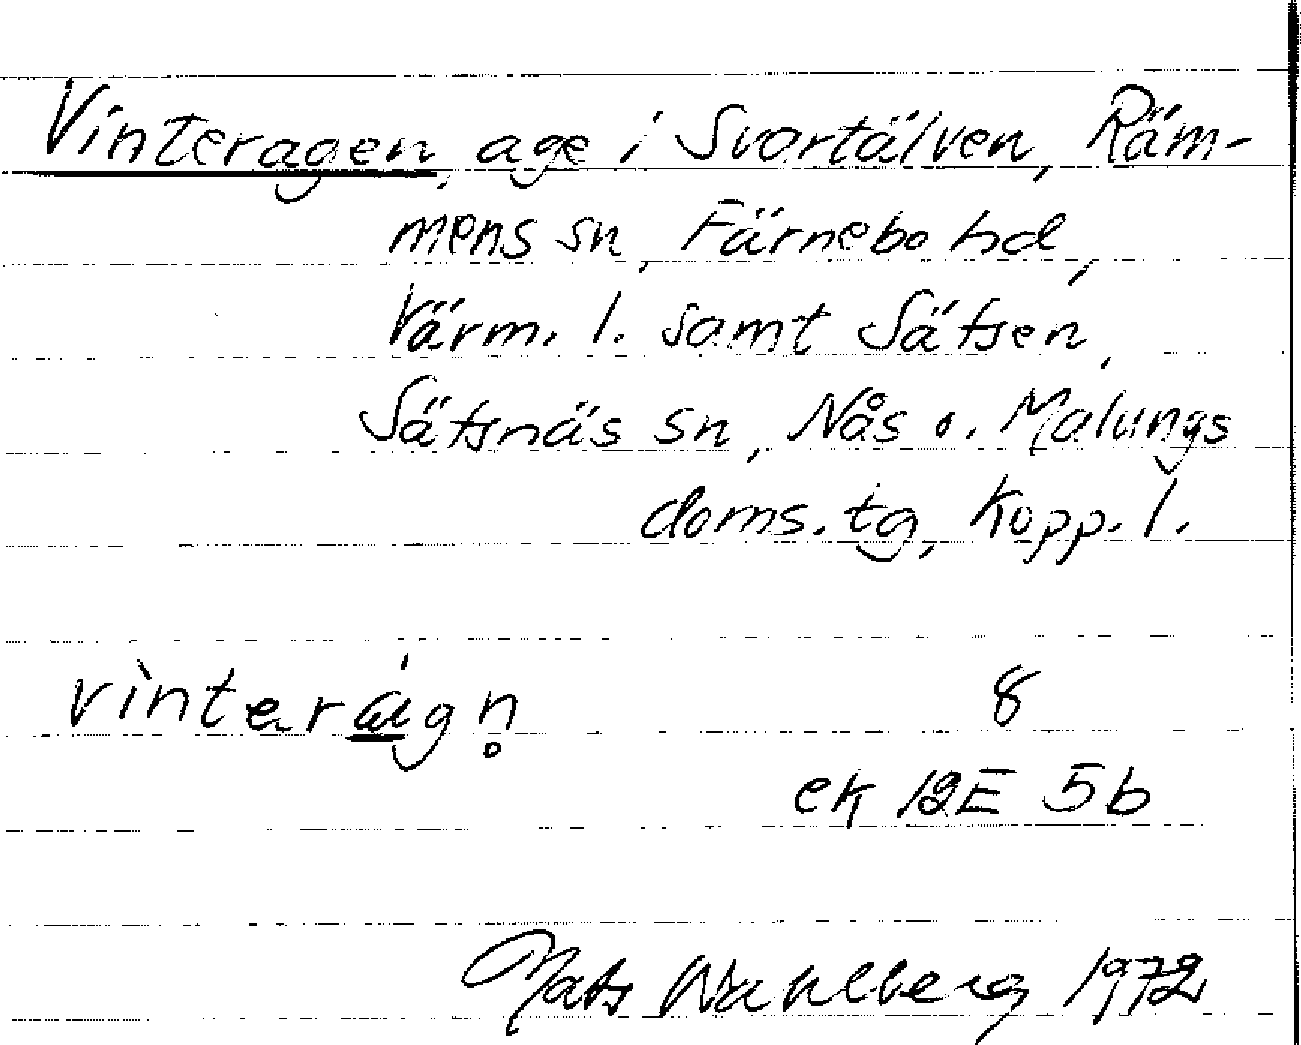 Vinteragen, age i Svartälven, Räm-
mens sn, Färnebo hd,
Värm. l. samt Sätsen,
Sätsnäs sn, Nås o. Malungs
doms. tg, Kopp. l.
vìnterágn̥ 8
ek 12E 5b
Mats Wahlberg 1972